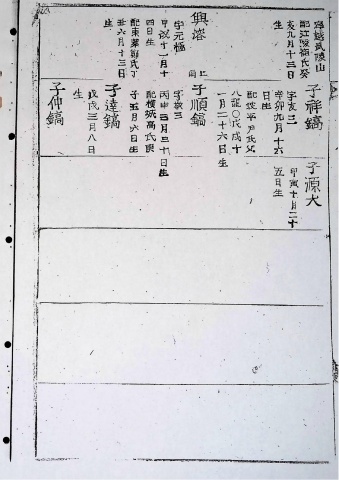 配江陵劉氏癸
亥九月十三日
生
興溶
字元極
甲戌十一月十
四日生
配東萊鄭氏丁
丑六月十三日
生
子祥鎬
辛卯九月十六
日生
配坡平尹氏父
八龍〇戊戌十
一月二十六日生
子順鎬
丙申三月三十日生
配橫城高氏庚
子五月六日生
子達鎬
戊戌三月八日
生
子仲鎬
子源大
甲寅十月二十
五日生